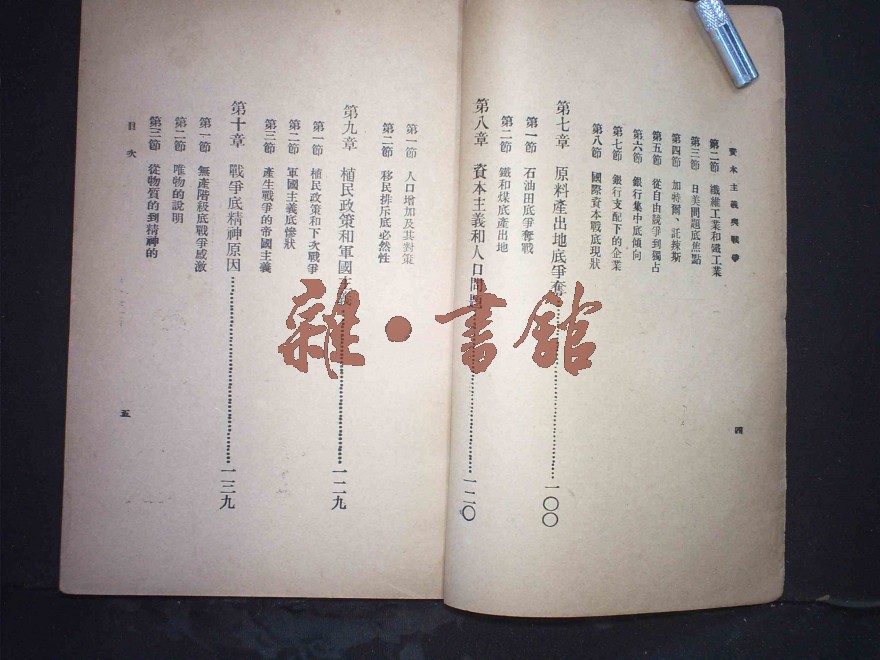 資本主義與戰爭
第二節 纖維工業和鐵工業
第三節 日美問題底焦點
第四節 加特爾、託辣斯
第五節 從自由競爭到獨占
第六節 銀行集中底傾向
第七節 銀行支配下的企業
第八節 國際資本戰底現狀
第七章 原料產出地底爭奪……一〇〇
第一節 石油田底爭奪戰
第二節 鐵和煤底產出地
第八章 資本主義和人口問題……一二〇
四
第一節 人口增加及其對策
第二節 移民排斥底必然性
第九章 植民政策和軍國主義……一二九
第一節 植民政策和下次戰爭
第二節 軍國主義底慘狀
第三節 產生戰爭的帝國主義
第十章 戰爭底精神原因……一三九
第一節 無產階級底戰爭感激
第二節 唯物的說明
第三節 從物質的到精神的
目次
五
雜·書館